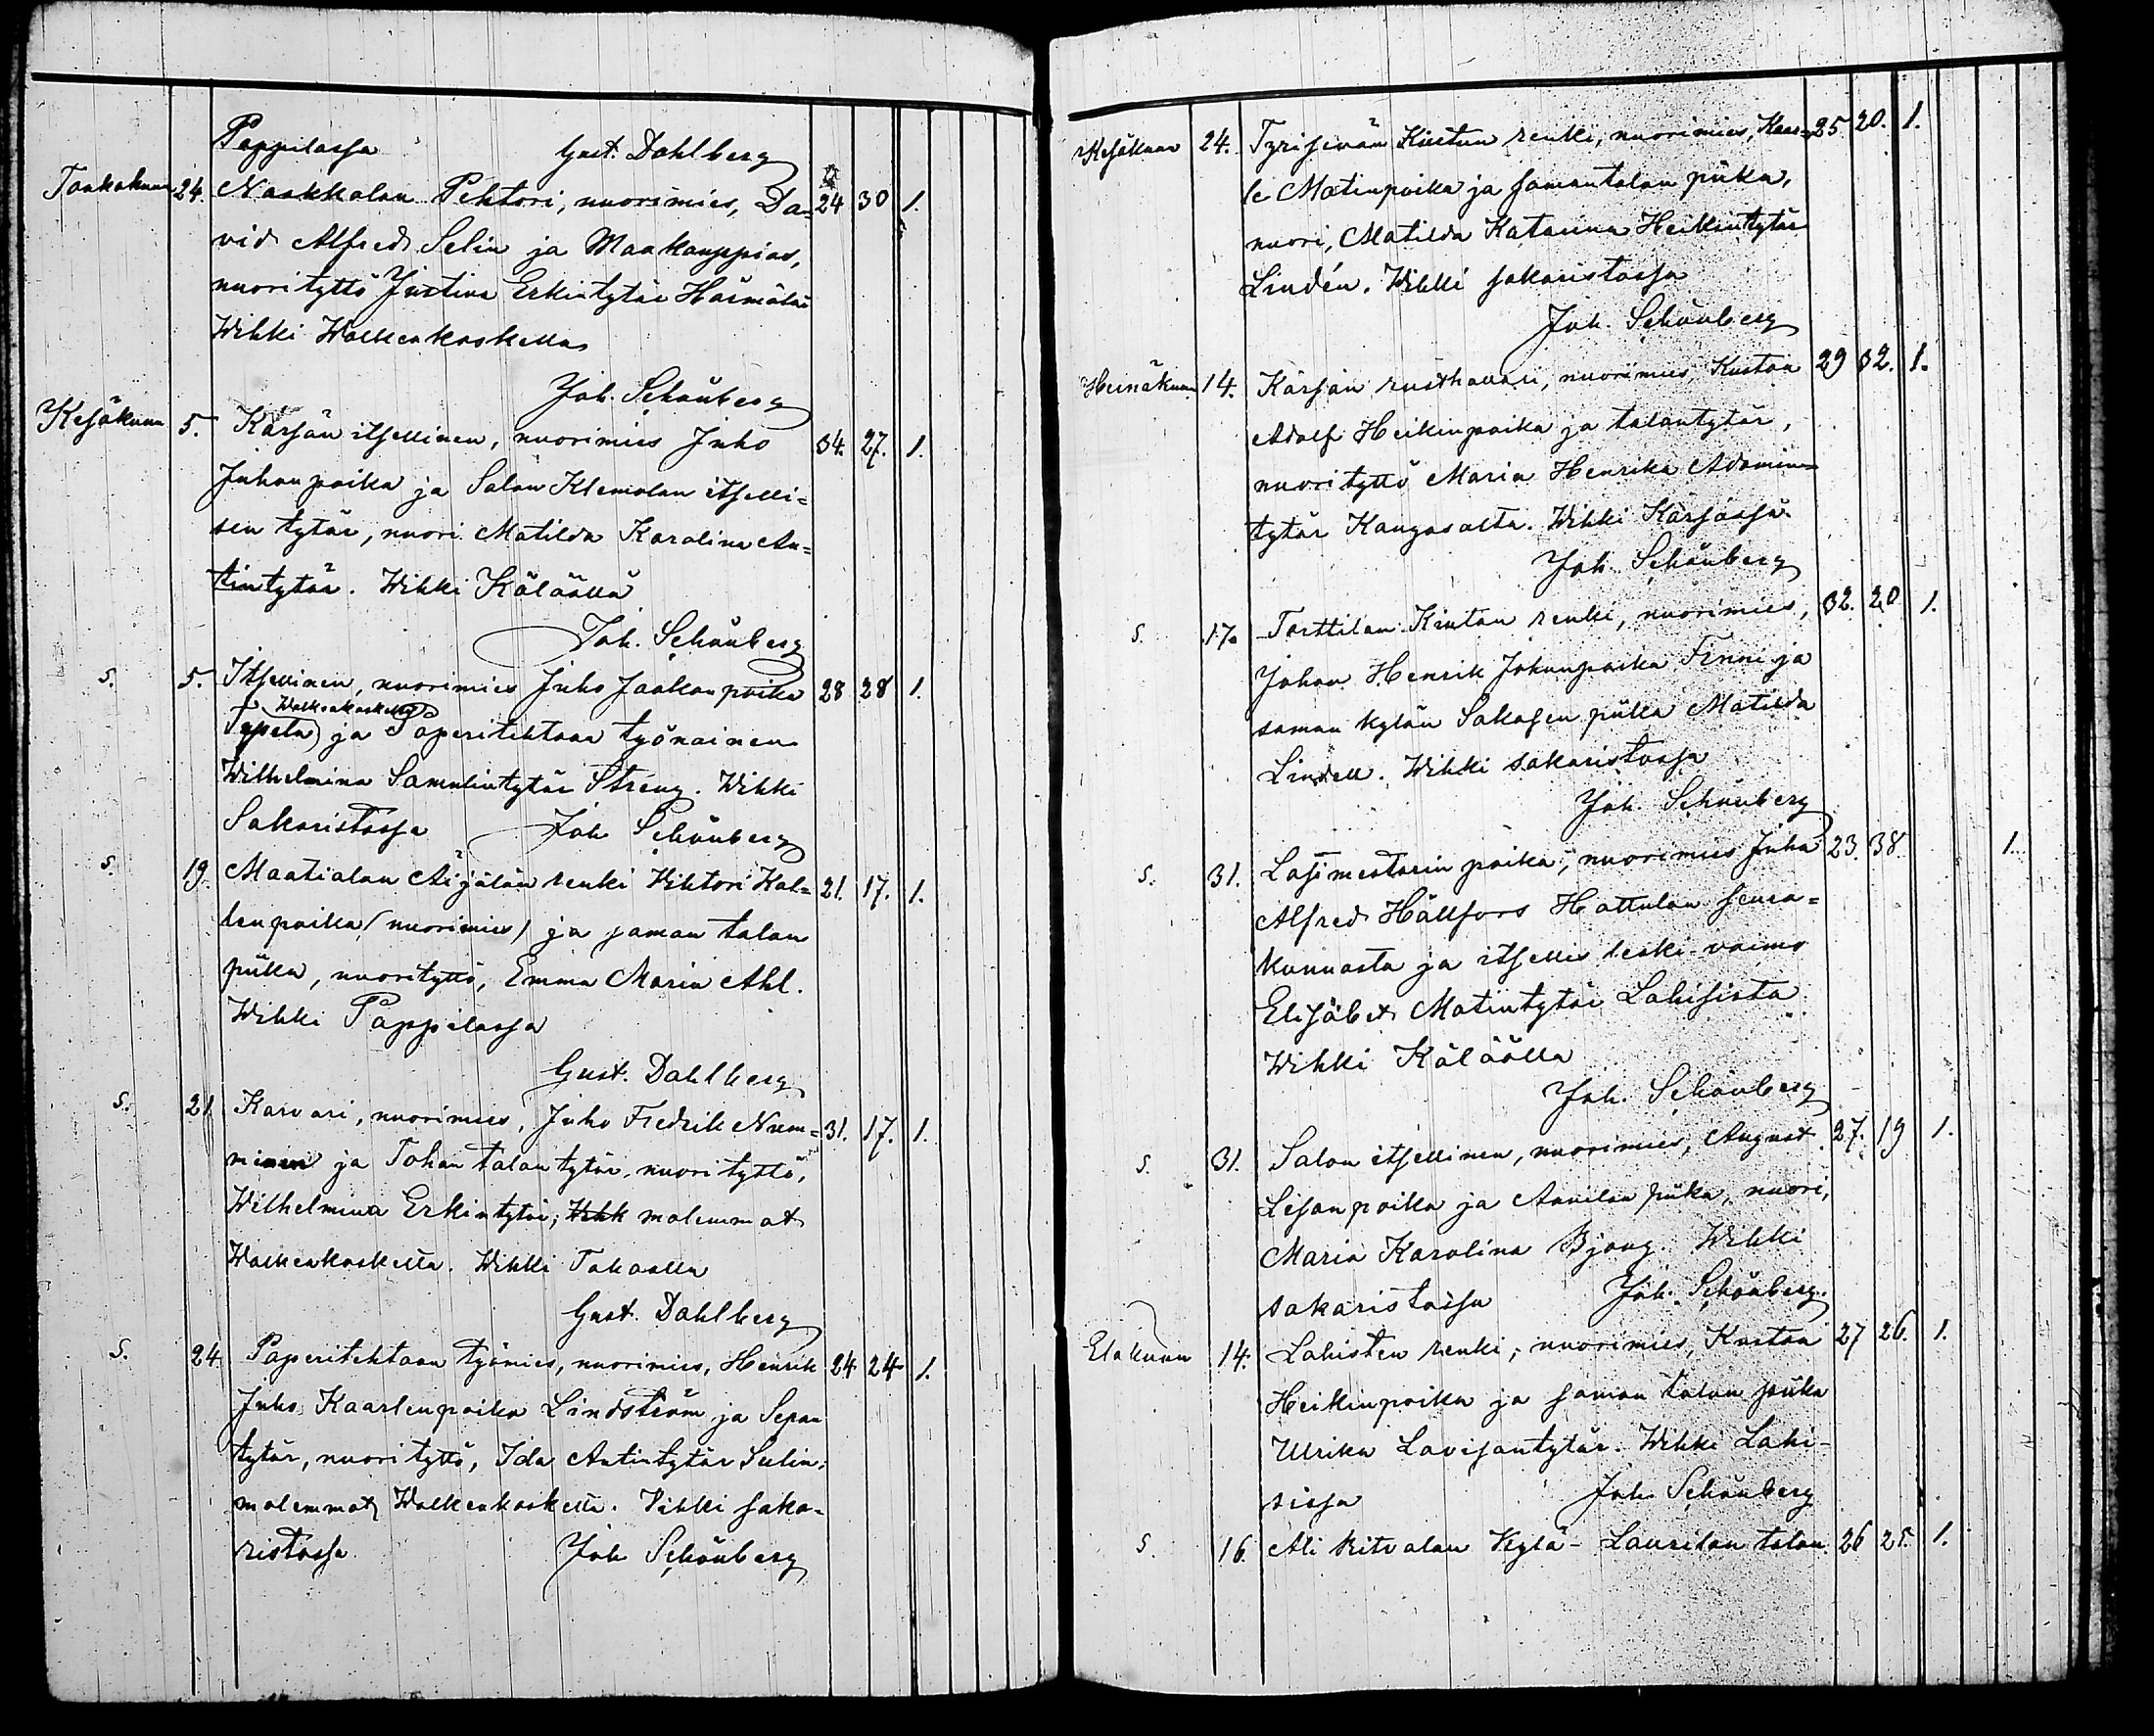 Pappilassa Gust. Dahlberg
Toukokuun 24. Naakkalan Pehtori, nuorimies, Da= 24 30 1.
vid Alfred Selin ja Maakauppias,
nuori tyttö Justina Erkintytär
Wihki Walkeakoskella
Joh. Schönberg
Kesäkuun 5. Kärjän itsellinen, nuorimies Juho 34. 27. 1.
Juhonpoika ja Salon Klemolan itselli=
sen tytär, nuori Matilda Karolina An=
tintytär. Wihki Käläällä
Joh. Schönberg
s. 5. Itsellinen, nuorimies Juho Jaakonpoika 28 28 1.
Walkeakoskelta
Tapeta ja Paperitehtaan työnainen
Wilhelmina Samulintytär Streng. Wihki
Sakaristossa Joh Schönberg
s. 19. Maatialan Äijälän renki Wihtori Kal= 21. 17. 1.
lenpoika (nuorimies) ja saman talon
piika, nuorityttö, Emma Maria Ahl.
Wihki Pappilassa
Gust. Dahlberg
s. 21 Karvari, nuorimies, Juho Fredrik Num= 31. 17. 1.
minen ja Tohan talon tytär, nuori tyttö,
Wilhelmina Erkintytär, Wihk molemmat
Walkeakoskella. Wihki Tohaalla
Gust. Dahlberg
s. 24 Paperitehtaan työmies, nuorimies, Henrik 24 24 1.
Juho Kaarlenpoika Lindström ja Sepän
tytär, nuori tyttö, Ida Antintytär Sulin,
molemmat Walkeakoskella. Vihki saka-
ristossa Joh Schönberg
Kesäkuun 24. Kustun renki, nuorimies, Kaar= 25. 20. 1.
le Matinpoika ja samantalon piika,
nuori, Matilda Katarina Heikintytär
Lindén. Wihki sakaristossa
Joh. Schönberg
Heinäkuun 14. Kärjän rusthollari, nuorimies Kustaa 29 32. 1.
Adolf Heikinpoika ja talontytär,
nuori tyttö Maria Henrika Adamin=
tytär Kangasalta. Wihki Kärjässä.
Joh. Schönberg
s. 17. Torttilan renki, nuorimies, 32. 20 1.
Johan Henrik Johanpoika Finni ja
saman kylän Sakasen piika Matilda
Lindell. Wihki sakaristossa
Joh. Schönberg
s. 31. Lasimestarin poika, nuorimies Juha 23. 38. 1.
Alfred Hällfors Hattulan seura=
kunnasta ja itsellis leski-vaimo
Elisabet Matintytär Lahisista
Wihki Käläällä
Joh. Schönberg
s. 31. Salon itsellinen, nuorimies, August 27. 19 1.
Lisanpoika ja Annilan piika, nuori,
Maria Karolina Bjong. Wihki
sakaristossa Joh. Schönberg.
Elokuun 14. Lahisten renki, nuorimies, Kustaa 27 26. 1.
Heikinpoika ja saman talon piika
Ulrika Lovisantytär. Wihki Lahi-
sissa Joh Schönberg
s. 16. Ali Ritvalan Kylä-Laurilan talon 26 25. 1.